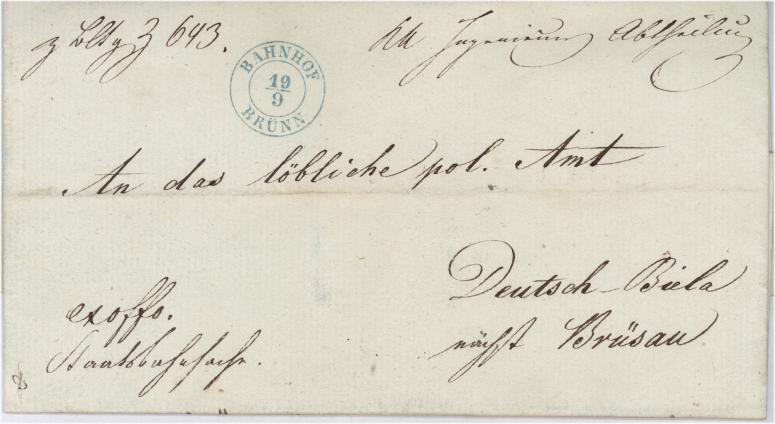 643.
KK Ingenieur Abtheilung
BAHNHOF
19
9
BRÜNN
An das löbliche pol. Amt
Deutsch-Biela
nächst Brüsau
exoffo.
Staatsbahnsache.